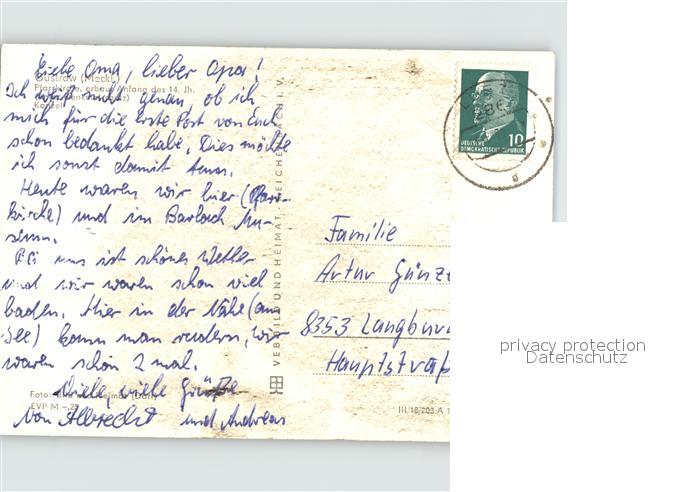 Liebe Oma, lieber Opa!
Güstrow (Meckl)
Pfarrkirche, erbaut Anfang des 14. Jh.
Ich weiß nicht genau, ob ich
Kanzel
mich für die erste Post von Euch
schon bedankt habe. Dies möchte
ich sonst damit tun.
Heute waren wir hier (Pfarr-
kirche) und im Barlach Mu-
seum.
Bei uns ist schönes Wetter
und wir waren schon viel
baden. Hier in der Nähe (am
See) kann man rudern, wir
waren schon 2 mal.
Viele, viele Grüße
Foto:
EVP M -,25
von Albrecht und Andreas
VEB BILD UND HEIMAT, REICHENBACH I. V.
DEUTSCHE 10
DEMOKRATISCHE REPUBLIK
Familie
Artur Günz
8353 Langburk
Hauptstraß
III 18 203 A 1
privacy protection
Datenschutz